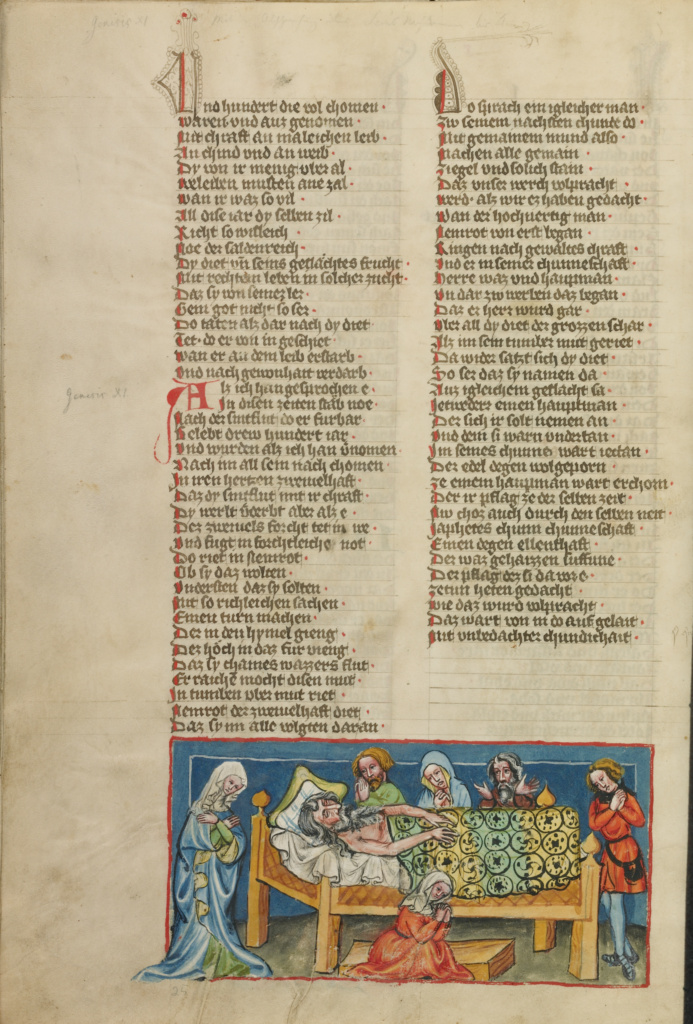 Und hundert die vol chomen
waren und auz genomen
Mit chraft an manleichen leib
An chind vnd an weib
Dy von ir menig vber al
beleiben musten ane zal
wan ir waz so vil
All dise iar dy selben zil
Richt so willeich
Noe der saldenreich
Dy diet vñ seins geslachtes frucht
Mit rechtem leben in solcher zucht
Daz sy von seiner ler
Gein got nicht so ser
Do taten alz dar nach dy diet
Tet do er von in geschiet
wan er an dem leib erstarb
Vnd nach gewonhait verdarb
Alz ich han gesprochen e
In disen zeiten starb noe
Nach der sintflut do er furbar
Gelebt drew hundert iar
Vnd wurden alz ich han v̄nomen
Nach im all sein nach chomen
In iren hertzen zweivelhaft
Daz dy sintflut mit ir chraft
Dy werlt v̄derbt aber alz e
Dez zweivels forcht tet in we
Vnd fugt in forchtleiche not
Do riet in Nemrot
Ob sy daz wolten
Vndersten daz sy solten
Mit so richleichen sachen
Einen turn machen
Der in den hymel gieng
Dez höch in daz fur vieng
Daz sy chaines wazzers flut
Er raichen mocht disen mut
In tumben vber mut riet
Nemrot der zweivelhaft diet
Daz sy im alle volgten daran
Do sprach ein igleicher man
Zw seinem nachsten chunde do
Mit gemainem mund also
Machen alle gemain
Ziegel vnd solich stain
Daz vnser werch volpracht
werd alz wir ez haben gedacht
Wan der hochvertig man
Nemrot von erst began
Ringen nach gewaltes chraft
Vnd er in seiner chunneschaft
Herre waz vnd hauptman
Vn dar zw werben daz began
Daz er herr wurd gar
Vber all dy diet der grozzen schar
Alz im sein tumber mut geriet
Da wider satzt sich dy diet
So ser daz sy namen da
Auz igleichem geslacht sa
Ietweders einen hauptman
Der sich ir solt nemen an
Vnd dem si warn vndertan
In semes chunne wart iectan
Der edel degen wolgeporn
Ze einem hauptman wart erchorn
Der ir pflag ze der selben zeit
Nw choz auch durch den selben neit
Japhetes chunn chunneschaft
Einen degen ellenthaft
Der waz gehaizzen suffune
Der pflag der si da
zetun heten gedacht
wie daz wurd volpracht
Daz wart von in do auf gelait
Mit vnbedachter chundichait
Genesis XI